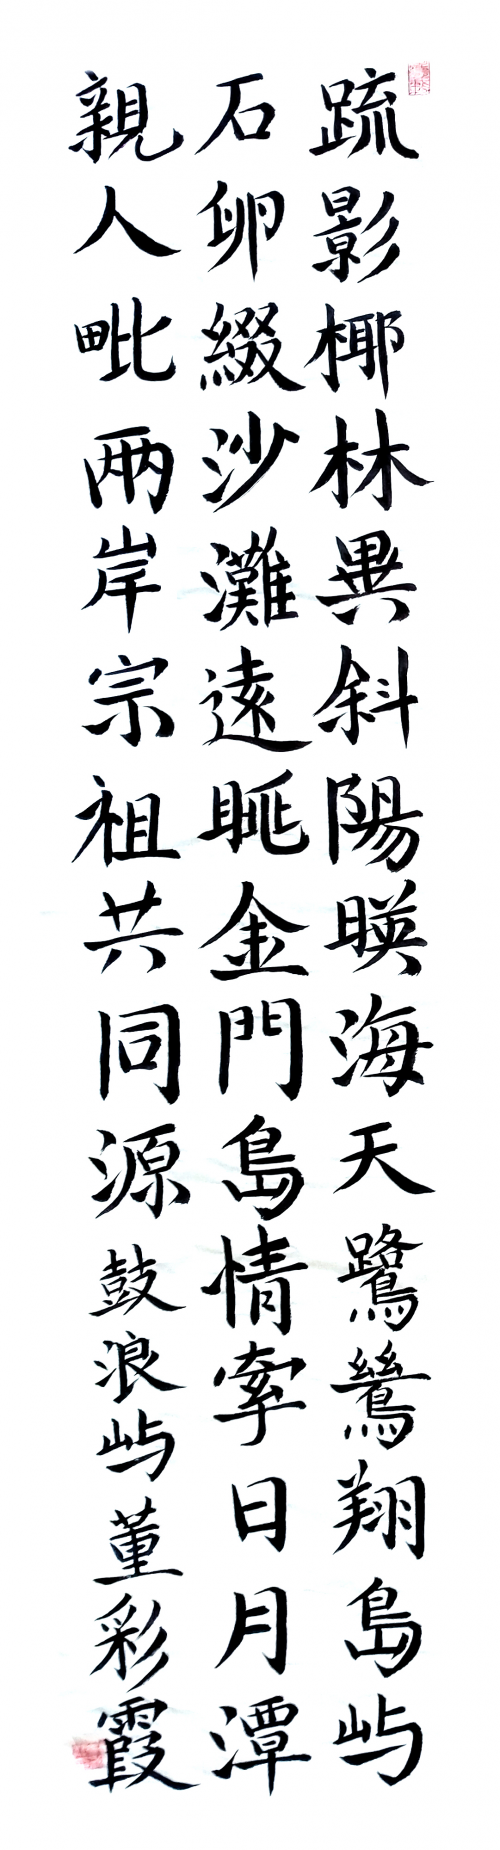 䟽影椰林異斜陽暎海天鷺鷥翔島屿
石卵綴沙灘遠眺金門島情牽日月潭
親人毗两岸宗祖共同源 鼓浪屿董彩霞